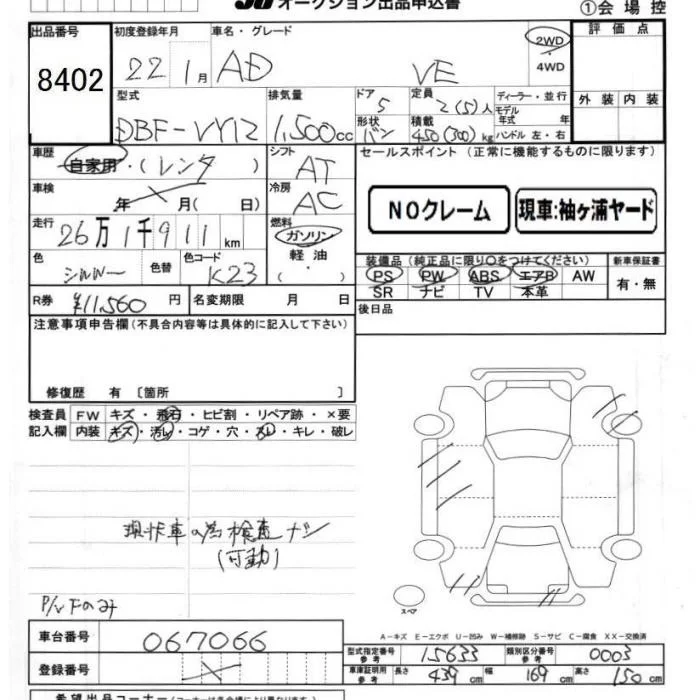 JU オークション出品申込書
①会場控
出品番号 8402
初度登録年月 22 1月
車名・グレード AD VE
2WD・4WD
評価点
外装 内装
型式 DBF-VY12
排気量 1,500cc
ドア 5
形状 バン
定員 2(5)人
積載 450(300)kg
ディーラー・並行
モデル年式 年
ハンドル 左・右
車歴 自家用・(レンタ)
シフト AT
セールスポイント(正常に機能するものに限ります)
車検 年 月(日)
冷房 AC
NOクレーム
現車:袖ヶ浦ヤード
走行 26万1千911km
燃料 ガソリン
軽油
( ・ )
色 シルバー
色替
色コード K23
装備品(純正品に限り○をつけてください)
新車保証書
PS PW ABS エアB AW
SR ナビ TV 本革
有・無
R券 ¥11,560円
名変期限 月 日
後日品
注意事項申告欄(不具合内容等は具体的に記入して下さい)
修復歴 有〔箇所 〕
検査員記入欄
FW キズ・飛石・ヒビ割・リペア跡・×要
内装 キズ・汚レ・コゲ・穴・スレ・キレ・破レ
現状車の為検査ナシ
(可動)
P/Vドのみ
スペア
A-キズ E-エクボ U-凹み W-補修跡 S-サビ C-腐食 XX-交換済
車台番号 067066
型式指定番号 参考 15633
類別区分番号 参考 0003
登録番号
車庫証明用 参考 長さ 439cm 幅 169cm 高さ 150cm
希望出品コーナー(コーナーは各会場により異なります)